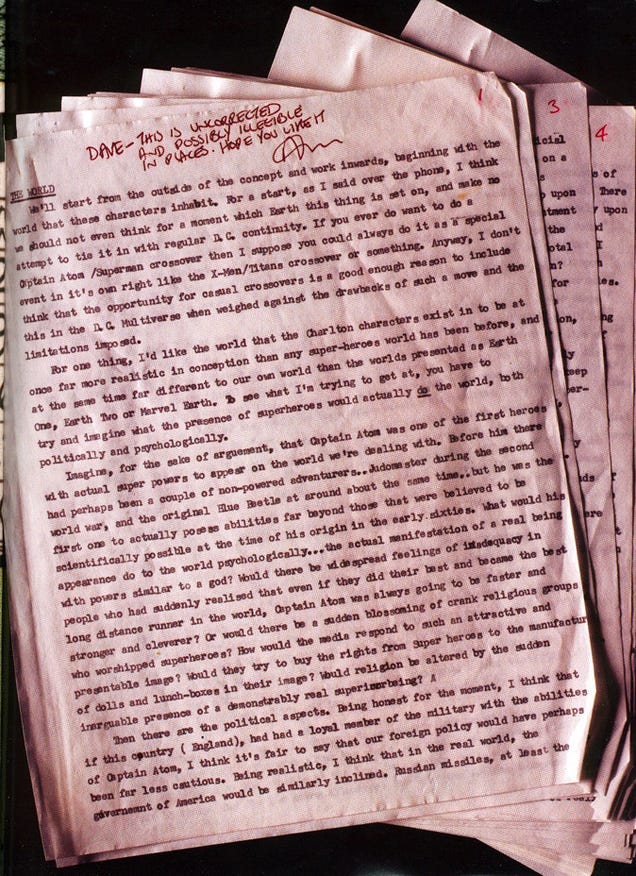 DAVE - THIS IS UNCORRECTED
AND POSSIBLY ILLEGIBLE
IN PLACES. HOPE YOU LIKE IT
1
3
4
THE WORLD
We'll start from the outside of the concept and work inwards, beginning with the
world that these characters inhabit. For a start, as I said over the phone, I think
we should not even think for a moment which Earth this thing is set on, and make no
attempt to tie it in with regular D.C. continuity. If you ever do want to do a
Captain Atom /Superman crossover then I suppose you could always do it as a special
event in it's own right like the X-Men/Titans crossover or something. Anyway, I don't
think that the opportunity for casual crossovers is a good enough reason to include
this in the D.C. Multiverse when weighed against the drawbacks of such a move and the
limitations imposed.
For one thing, I'd like the world that the Charlton characters exist in to be at
once far more realistic in conception than any super-heroes world has been before, and
at the same time far different to our own world than the worlds presented as Earth
One, Earth Two or Marvel Earth. To see what I'm trying to get at, you have to
try and imagine what the presence of superheroes would actually do the world, both
politically and psychologically.
Imagine, for the sake of arguement, that Captain Atom was one of the first heroes
with actual super powers to appear on the world we're dealing with. Before him there
had perhaps been a couple of non-powered adventurers..Judomaster during the second
world war, and the original Blue Beetle at around about the same time..but he was the
first one to actually posess abilities far beyond those that were believed to be
scientifically possible at the time of his origin in the early sixties. What would his
appearance do to the world psychologically...the actual manifestation of a real being
with powers similar to a god? Would there be widespread feelings of inadequacy in
people who had suddenly realised that even if they did their best and became the best
long distance runner in the world, Captain Atom was always going to be faster and
stronger and cleverer? Or would there be a sudden blossoming of crank religious groups
who worshipped superheroes? How would the media respond to such an attractive and
presentable image? Would they try to buy the rights from Super heroes to the manufactur
of dolls and lunch-boxes in their image? Would religion be altered by the sudden
inarguable presence of a demonstrably real being? A
Then there are the political aspects. Being honest for the moment, I think that
if this country ( England), had had a loyal member of the military with the abilities
of Captain Atom, I think it's fair to say that our foreign policy would have perhaps
been far less cautious. Being realistic, I think that in the real world, the
government of America would be similarly inclined. Russian missiles, at least the